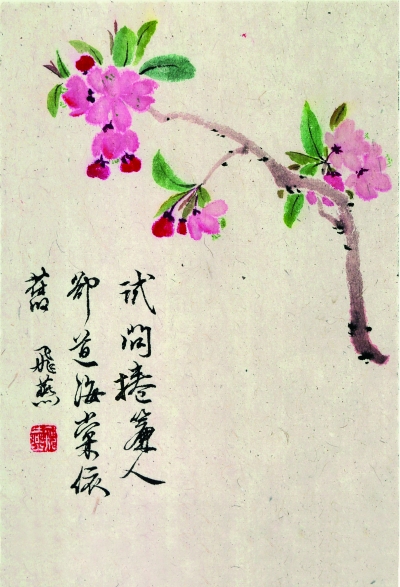 試問捲簾人
卻道海棠依
舊
飛燕